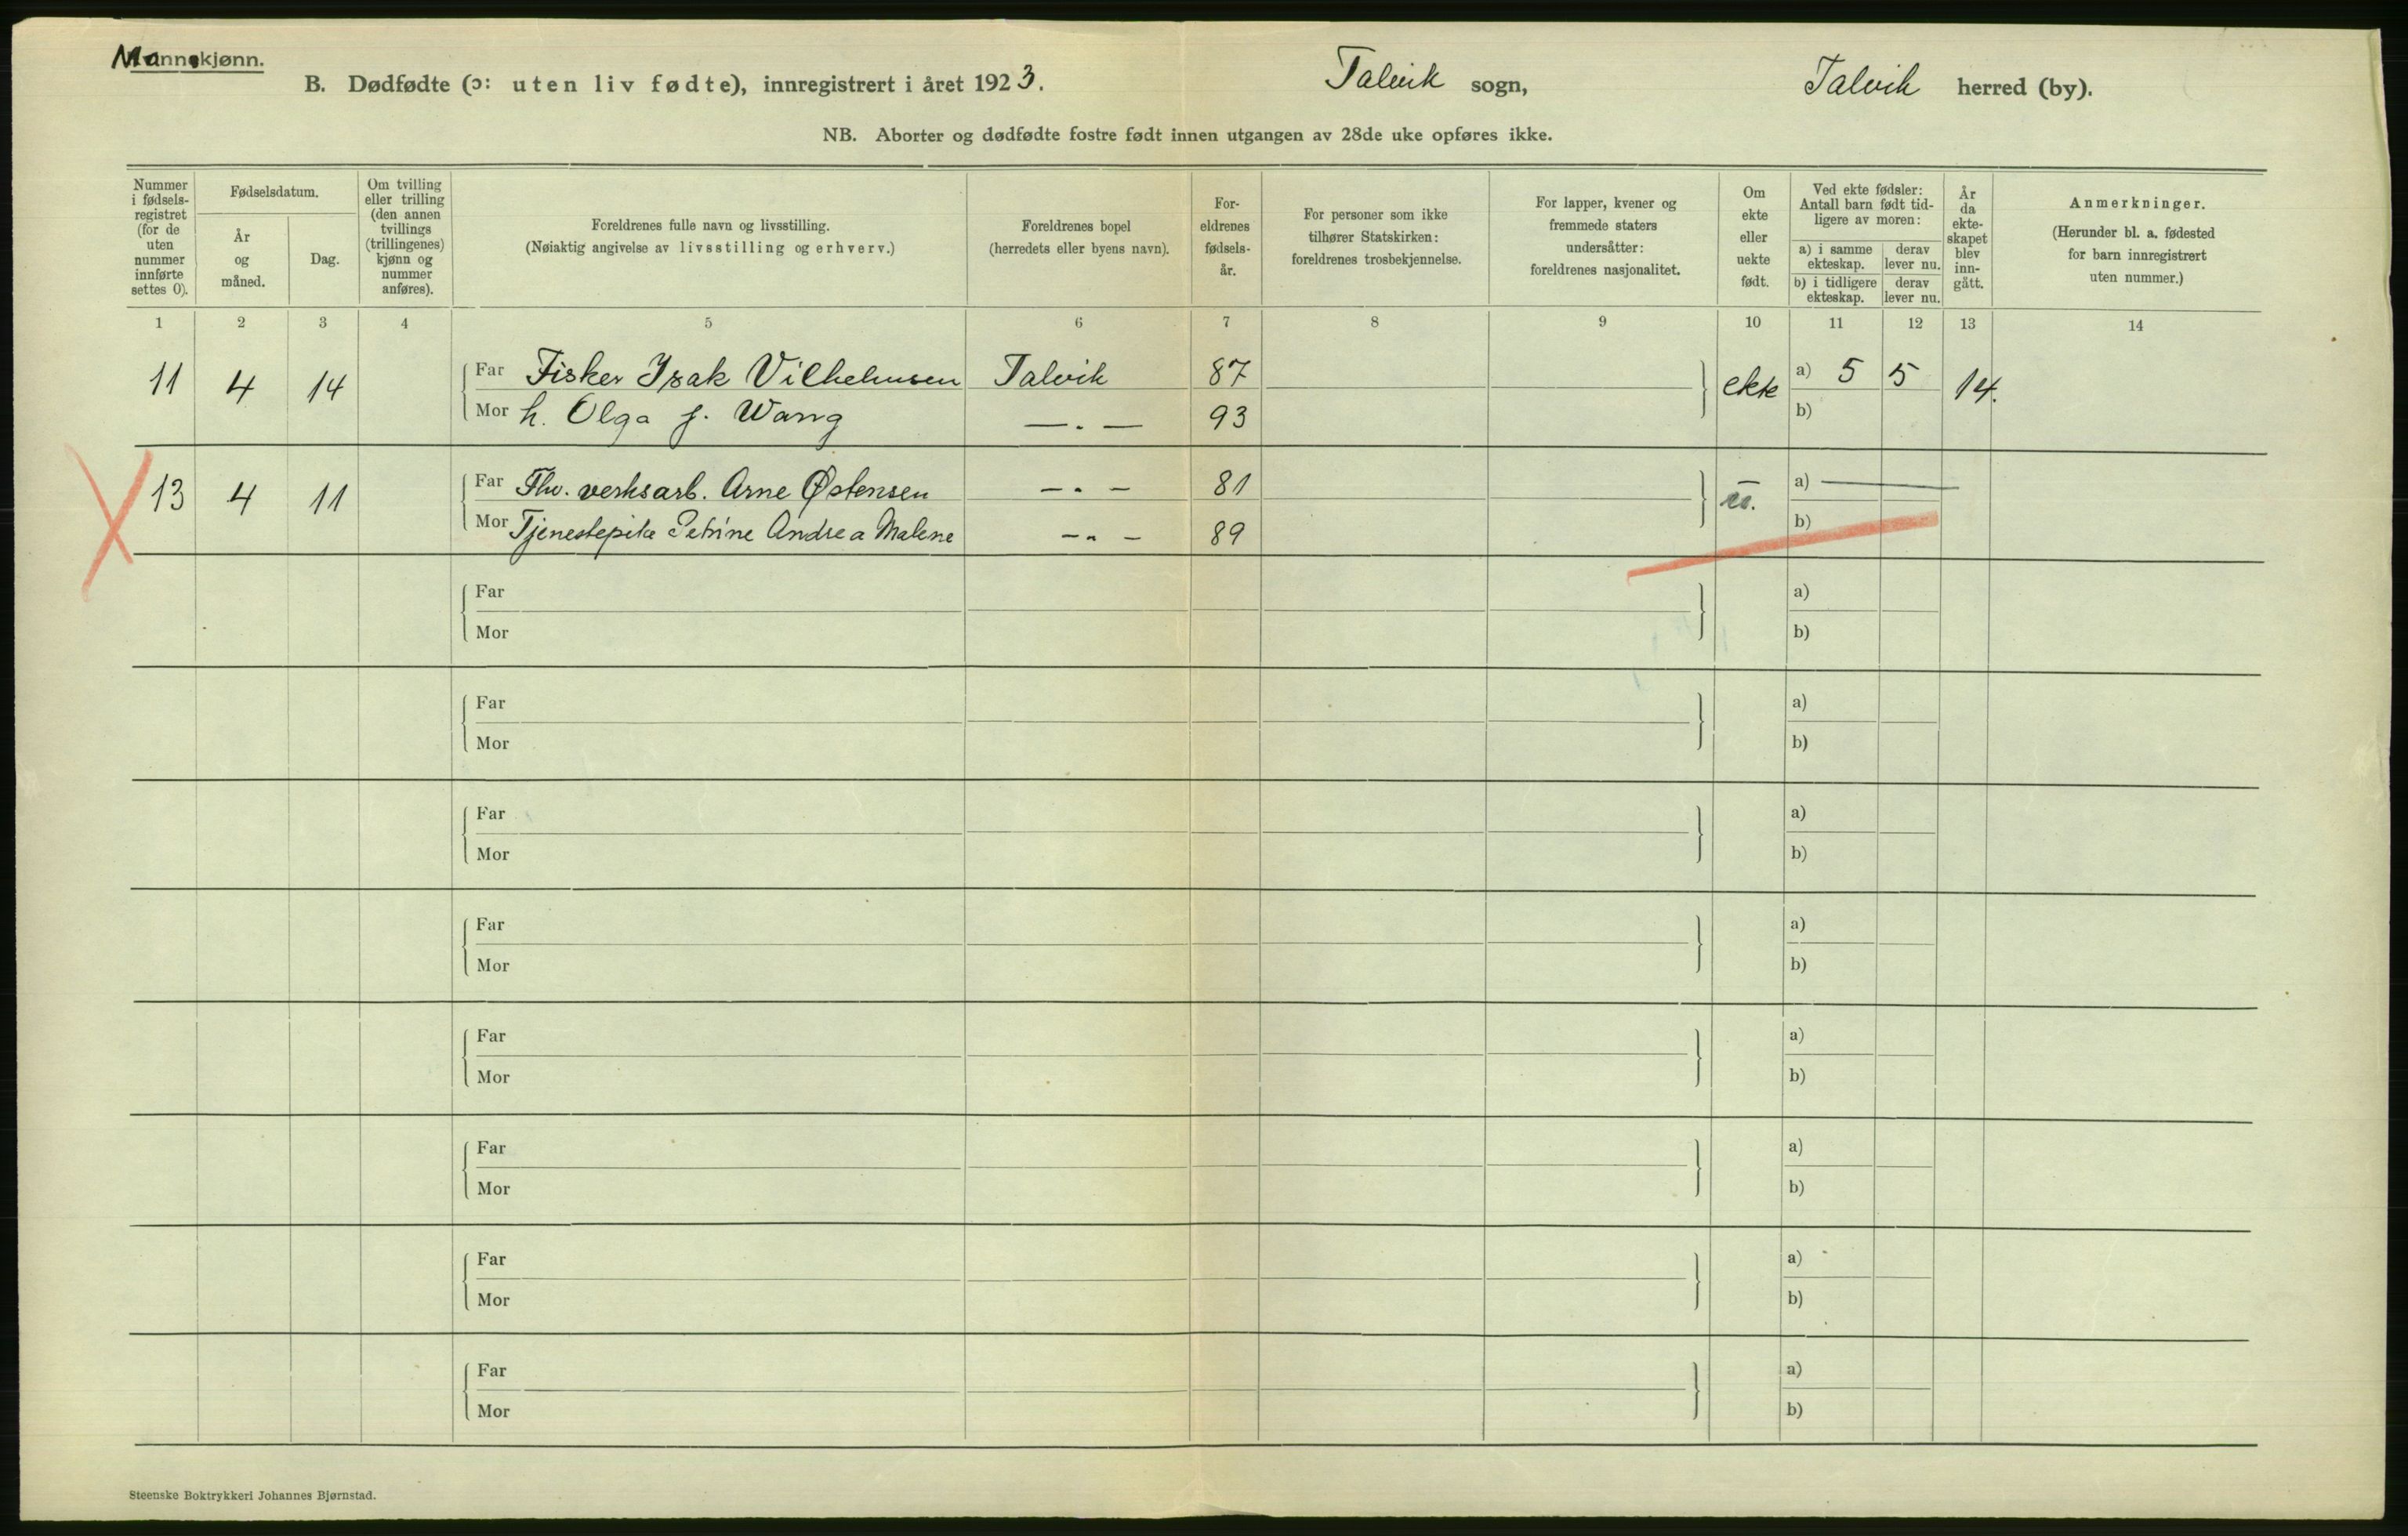 Mannkjønn.
B. Dødfødte (ɔ: uten liv fødte), innregistrert i året 1923.
Talvik sogn,
Talvik herred (by).
NB. Aborter og dødfødte fostre født innen utgangen av 28de uke opføres ikke.
Nummer
i fødsels-
registret
(for de
uten
nummer
innførte
settes 0).
Fødselsdatum.
År
og
måned.
Dag.
Om tvilling
eller trilling
(den annen
tvillings
(trillingenes)
kjønn og
nummer
anføres).
Foreldrenes fulle navn og livsstilling.
(Nøiaktig angivelse av livsstilling og erhverv.)
Foreldrenes bopel
(herredets eller byens navn).
For-
eldrenes
fødsels-
år.
For personer som ikke
tilhører Statskirken:
foreldrenes trosbekjennelse.
For lapper, kvener og
fremmede staters
undersåtter:
foreldrenes nasjonalitet.
Om
ekte
eller
uekte
født.
Ved ekte fødsler:
Antall barn født tid-
ligere av moren:
a) i samme
ekteskap.
derav
lever nu.
b) i tidligere
ekteskap.
derav
lever nu.
År
da
ekte-
skapet
blev
inn-
gått.
Anmerkninger.
(Herunder bl. a. fødested
for barn innregistrert
uten nummer.)
1 2 3 4 5 6 7 8 9 10 11 12 13 14
11 4 14 Far Fisker Isak Vilhelmsen Talvik 87 ekte a) 5 5 14.
Mor h. Olga f. Wang —〃— 93 b)
13 4 11 Far Thv. verksarb. Arne Østensen —〃— 81 a) —
Mor Tjenestepike Petrine Andrea Malene —〃— 89 b)
Far a)
Mor b)
Far a)
Mor b)
Far a)
Mor b)
Far a)
Mor b)
Far a)
Mor b)
Far a)
Mor b)
Far a)
Mor b)
Far a)
Mor b)
Steenske Boktrykkeri Johannes Bjørnstad.